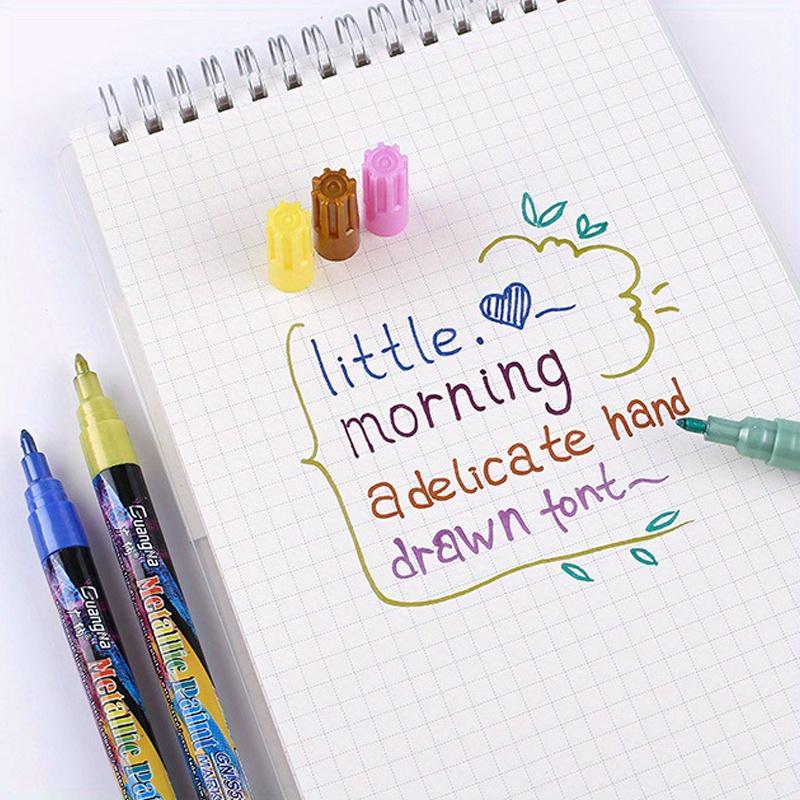 little.
morning
a delicate hand
drawn font~
GuangNa
Metallic Paint
MARK
GuangNa
Metallic Pai